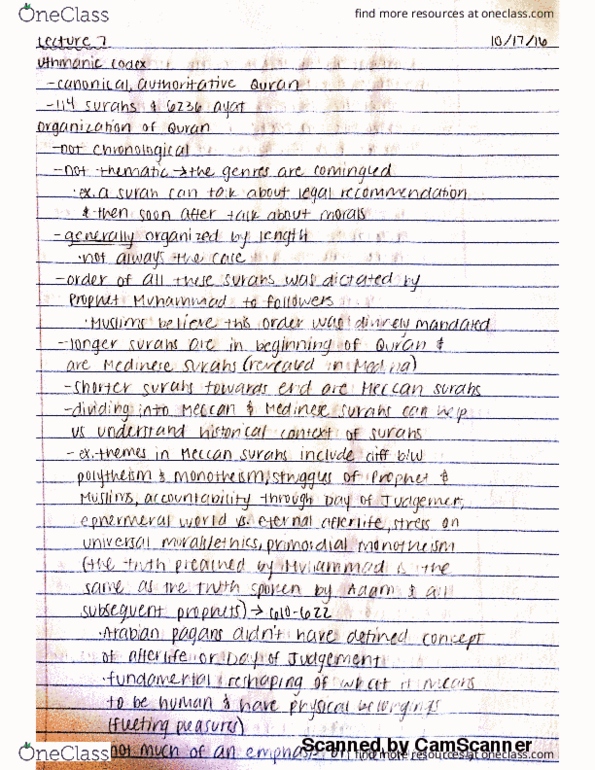 OneClass
find more resources at oneclass.com
Lecture 7 10/17/16
Uthmanic codex
-canonical, authoritative Quran
-114 surahs & 6236 ayat
organization of Quran
-not chronological
-not thematic → the genres are comingled
·ex. a surah can talk about legal recommendation
& then soon after talk about morals
-generally organized by length
·not always the case
-order of all these surahs was dictated by
Prophet Muhammad to followers
·Muslims believe this order was divinely mandated
-longer surahs are in beginning of Quran &
are Medinese surahs (revealed in Medina)
-shorter surahs towards end are Meccan surahs
-dividing into Meccan & Medinese surahs can help
us understand historical context of surahs
-ex. themes in Meccan surahs include diff b/w
polytheism & monotheism, struggles of Prophet &
Muslims, accountability through Day of Judgement,
ephermeral world vs. eternal afterlife, stress on
universal morals/ethics, primordial monotheism
(the truth preached by Muhammad is the
same as the truth spoken by Adam & all
subsequent prophets) → 610-622
·Arabian pagans didn't have defined concept
of afterlife or Day of Judgement
·fundamental reshaping of what it means
to be human & have physical belongings
(fleeting pleasures)
not much of an emphasis on
Scanned by CamScanner
OneClass
find more resources at oneclass.com